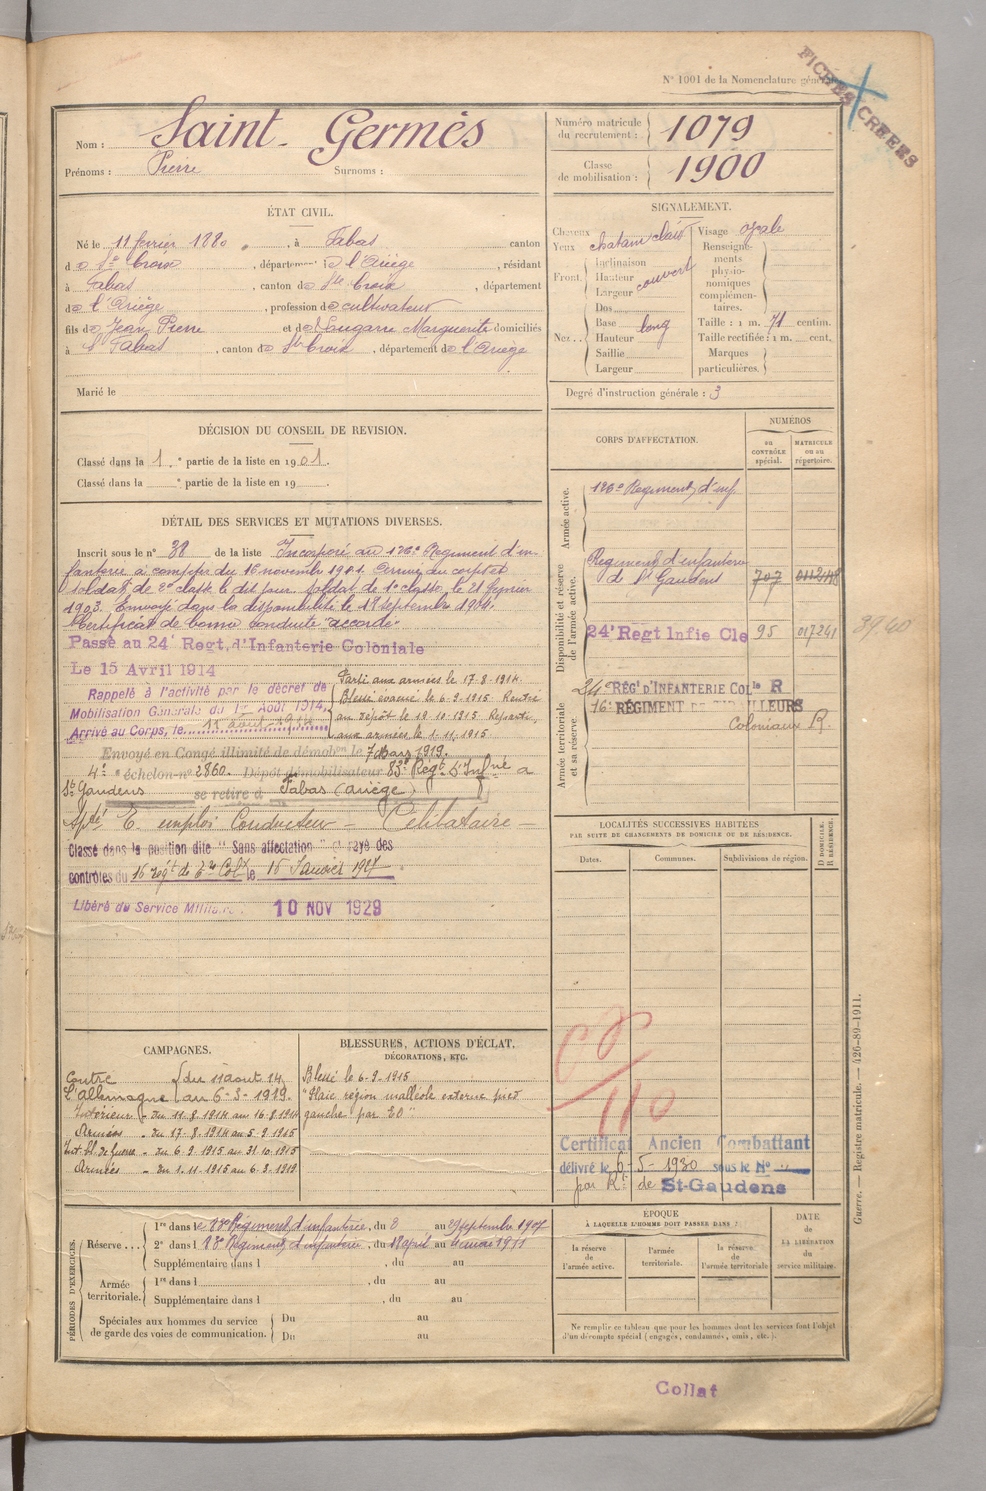 N° 1001 de la Nomenclature générale
FICHES CREEES
Nom : Saint-Germès
Prénoms : Pierre Surnoms :
Numéro matricule du recrutement : 1079
Classe de mobilisation : 1900
ÉTAT CIVIL.
Né le 11 février 1880, à Fabas canton
de Ste Croix, département de l'Ariège, résidant
à Fabas, canton de Ste Croix, département
de l'Ariège, profession de cultivateur
fils de Jean Pierre et de Laugarre Marguerite domiciliés
à Fabas, canton de Ste Croix, département de l'Ariège
Marié le
SIGNALEMENT.
Cheveux chatain clair Visage ovale
Yeux
Front Inclinaison
Hauteur couvert
Largeur
Nez Dos
Base long
Hauteur
Saillie
Largeur
Renseignements physionomiques complémentaires.
Taille : 1 m. 71 centim.
Taille rectifiée : 1 m. cent.
Marques particulières.
Degré d'instruction générale : 3
DÉCISION DU CONSEIL DE REVISION.
Classé dans la 1.e partie de la liste en 1901.
Classé dans la e partie de la liste en 19 .
DÉTAIL DES SERVICES ET MUTATIONS DIVERSES.
Inscrit sous le n° 38 de la liste Incorporé au 126e Régiment d'in-
fanterie à compter du 16 novembre 1901. Arrivé au corps et
soldat de 2e classe le dit jour. Soldat de 1e classe le 21 février
1903. Envoyé dans la disponibilité le 18 septembre 1904.
Certificat de bonne conduite "accordé"
Passé au 24e Regt. d'Infanterie Coloniale
Le 15 Avril 1914
Rappelé à l'activité par le décret de
Mobilisation Générale du 1er Août 1914,
Arrivé au Corps, le 11 août 1914
Parti aux armées le 17-8-1914.
Blessé évacué le 6-9-1915 Rentré
au dépôt le 18 10 1915 Reparti
aux armées le 1-11-1915
Envoyé en Congé illimité de démobon le 7 Mars 1919.
4e échelon n° 2860. Dépôt démobilisateur 83e Régt d'Infrie a
St Gaudens se retire à Fabas (Ariège)
E. emploi Conducteur - Célibataire -
Classé dans la position dite "Sans affectation" et rayé des
contrôles du 16 régt de le 15 Janvier 1927
Libéré du Service Militaire. 10 NOV 1929
CORPS D'AFFECTATION.
NUMÉROS
au CONTRÔLE spécial.
MATRICULE ou au répertoire.
Armée active.
126e Régiment d'inf.
Disponibilité et réserve de l'armée active.
Régiment d'infanterie
de St Gaudens 707
24e Régt Infie Cle 95 017241 3940
Armée territoriale et sa réserve.
24e RÉGt D'INFANTERIE COLle R
16e RÉGIMENT DE TIRAILLEURS
Coloniaux R.
LOCALITÉS SUCCESSIVES HABITÉES
PAR SUITE DE CHANGEMENTS DE DOMICILE OU DE RÉSIDENCE.
Dates. Communes. Subdivisions de région. D DOMICILE. R RÉSIDENCE.
CAMPAGNES.
Contre { du 11 aout 14
L'Allemagne { au 6-3-1919.
Intérieur - du 11-8-1914 au 16-8-1914
Armées - du 17-8-1914 au 5-9-1915
Int. bl. de Guerre - du 6-9-1915 au 31-10-1915
Armées - du 1-11-1915 au 6-3-1919
BLESSURES, ACTIONS D'ÉCLAT,
DÉCORATIONS, ETC.
Blessé le 6-9-1915
"Plaie région malléole externe pied
gauche" par EO"
110
Certificat Ancien Combattant
délivré le 6-5-1930 sous le N°
par Rt de St-Gaudens
PÉRIODES D'EXERCICES.
Réserve . . . 1re dans le 88e Régiment d'infanterie, du 2 au 29 septembre 1907
2e dans l 88e Régiment d'infanterie, du 18 avril au 4 mai 1911
Supplémentaire dans l , du au
Armée territoriale. 1re dans l , du au
Supplémentaire dans l , du au
Spéciales aux hommes du service de garde des voies de communication. Du au
Du au
ÉPOQUE
À LAQUELLE L'HOMME DOIT PASSER DANS :
la réserve de l'armée active.
l'armée territoriale.
la réserve de l'armée territoriale
DATE
DE LA LIBÉRATION
du service militaire.
Ne remplir ce tableau que pour les hommes dont les services font l'objet
d'un décompte spécial (engagés, condamnés, omis, etc.).
Guerre. — Registre matricule. — 426-89-1911.
Collat